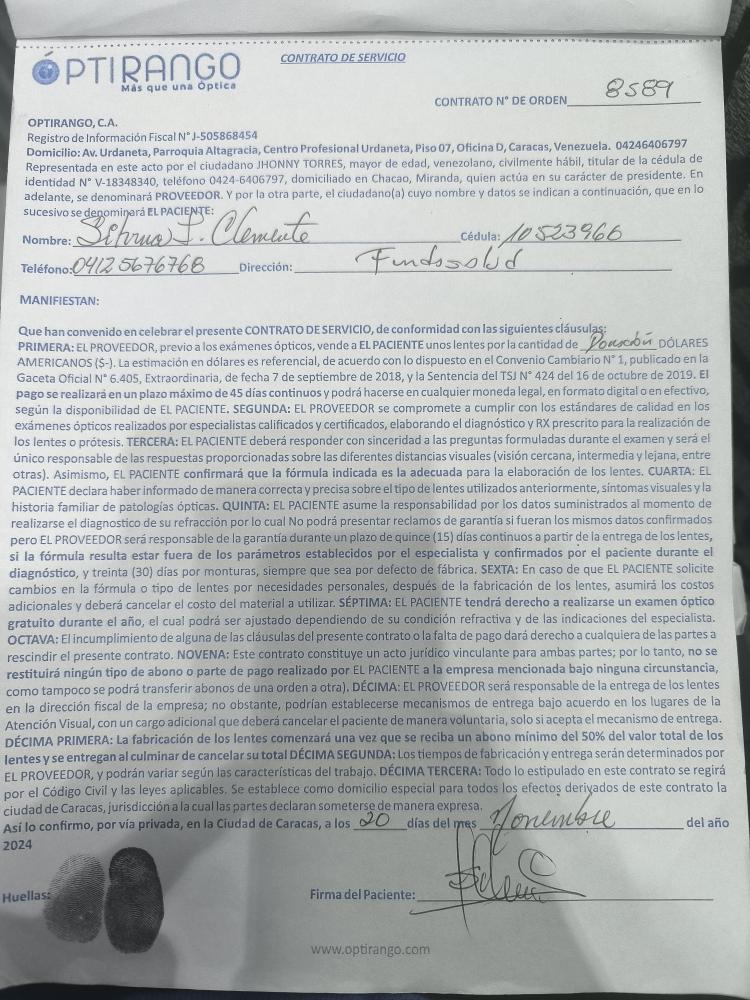 ÓPTIRANGO
Más que una Óptica
CONTRATO DE SERVICIO
CONTRATO N° DE ORDEN 8589
OPTIRANGO, C.A.
Registro de Información Fiscal N° J-505868454
Domicilio: Av. Urdaneta, Parroquia Altagracia, Centro Profesional Urdaneta, Piso 07, Oficina D, Caracas, Venezuela. 04246406797
Representada en este acto por el ciudadano JHONNY TORRES, mayor de edad, venezolano, civilmente hábil, titular de la cédula de
identidad N° V-18348340, teléfono 0424-6406797, domiciliado en Chacao, Miranda, quien actúa en su carácter de presidente. En
adelante, se denominará PROVEEDOR. Y por la otra parte, el ciudadano(a) cuyo nombre y datos se indican a continuación, que en lo
sucesivo se denominará EL PACIENTE:
Nombre: Clemente Cédula: 10523966
Teléfono: 0412 5676768 Dirección: Fundasalud
MANIFIESTAN:
Que han convenido en celebrar el presente CONTRATO DE SERVICIO, de conformidad con las siguientes cláusulas:
PRIMERA: EL PROVEEDOR, previo a los exámenes ópticos, vende a EL PACIENTE unos lentes por la cantidad de DÓLARES
AMERICANOS ($-). La estimación en dólares es referencial, de acuerdo con lo dispuesto en el Convenio Cambiario N° 1, publicado en la
Gaceta Oficial N° 6.405, Extraordinaria, de fecha 7 de septiembre de 2018, y la Sentencia del TSJ N° 424 del 16 de octubre de 2019. El
pago se realizará en un plazo máximo de 45 días continuos y podrá hacerse en cualquier moneda legal, en formato digital o en efectivo,
según la disponibilidad de EL PACIENTE. SEGUNDA: EL PROVEEDOR se compromete a cumplir con los estándares de calidad en los
exámenes ópticos realizados por especialistas calificados y certificados, elaborando el diagnóstico y RX prescrito para la realización de
los lentes o prótesis. TERCERA: EL PACIENTE deberá responder con sinceridad a las preguntas formuladas durante el examen y será el
único responsable de las respuestas proporcionadas sobre las diferentes distancias visuales (visión cercana, intermedia y lejana, entre
otras). Asimismo, EL PACIENTE confirmará que la fórmula indicada es la adecuada para la elaboración de los lentes. CUARTA: EL
PACIENTE declara haber informado de manera correcta y precisa sobre el tipo de lentes utilizados anteriormente, síntomas visuales y la
historia familiar de patologías ópticas. QUINTA: EL PACIENTE asume la responsabilidad por los datos suministrados al momento de
realizarse el diagnostico de su refracción por lo cual No podrá presentar reclamos de garantía si fueran los mismos datos confirmados
pero EL PROVEEDOR será responsable de la garantía durante un plazo de quince (15) días continuos a partir de la entrega de los lentes,
si la fórmula resulta estar fuera de los parámetros establecidos por el especialista y confirmados por el paciente durante el
diagnóstico, y treinta (30) días por monturas, siempre que sea por defecto de fábrica. SEXTA: En caso de que EL PACIENTE solicite
cambios en la fórmula o tipo de lentes por necesidades personales, después de la fabricación de los lentes, asumirá los costos
adicionales y deberá cancelar el costo del material a utilizar. SÉPTIMA: EL PACIENTE tendrá derecho a realizarse un examen óptico
gratuito durante el año, el cual podrá ser ajustado dependiendo de su condición refractiva y de las indicaciones del especialista.
OCTAVA: El incumplimiento de alguna de las cláusulas del presente contrato o la falta de pago dará derecho a cualquiera de las partes a
rescindir el presente contrato. NOVENA: Este contrato constituye un acto jurídico vinculante para ambas partes; por lo tanto, no se
restituirá ningún tipo de abono o parte de pago realizado por EL PACIENTE a la empresa mencionada bajo ninguna circunstancia,
como tampoco se podrá transferir abonos de una orden a otra). DÉCIMA: EL PROVEEDOR será responsable de la entrega de los lentes
en la dirección fiscal de la empresa; no obstante, podrían establecerse mecanismos de entrega bajo acuerdo en los lugares de la
Atención Visual, con un cargo adicional que deberá cancelar el paciente de manera voluntaria, solo si acepta el mecanismo de entrega.
DÉCIMA PRIMERA: La fabricación de los lentes comenzará una vez que se reciba un abono mínimo del 50% del valor total de los
lentes y se entregan al culminar de cancelar su total DÉCIMA SEGUNDA: Los tiempos de fabricación y entrega serán determinados por
EL PROVEEDOR, y podrán variar según las características del trabajo. DÉCIMA TERCERA: Todo lo estipulado en este contrato se regirá
por el Código Civil y las leyes aplicables. Se establece como domicilio especial para todos los efectos derivados de este contrato la
ciudad de Caracas, jurisdicción a la cual las partes declaran someterse de manera expresa.
Así lo confirmo, por vía privada, en la Ciudad de Caracas, a los 20 días del mes Noviembre del año
2024
Huellas:
Firma del Paciente:
www.optirango.com